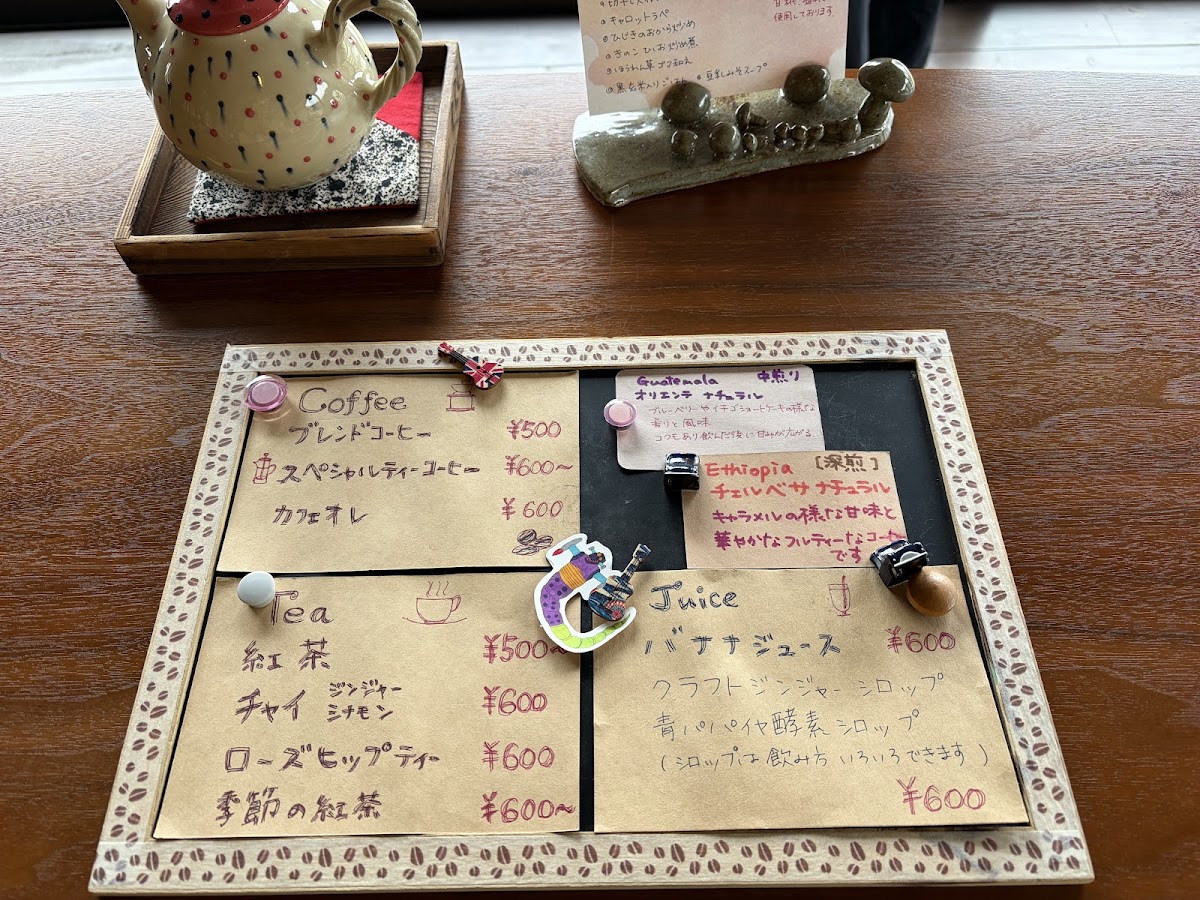 キャロットラペ
ひじきのおから炒め
きのこひしお炒め煮
ほうれん草ゴマ和え
豆乳みそスープ
使用しております
Coffee
ブレンドコーヒー ¥500
スペシャルティーコーヒー ¥600~
カフェオレ ¥600
Guatemala 中煎り
オリエンテ ナチュラル
ブルーベリーやイチゴショートケーキの様な
香りと風味
コクもあり飲んだ後に甘みが広がる
Ethiopia [深煎]
チェルベサ ナチュラル
キャラメルの様な甘味と
華やかなフルティーなコーヒー
です
Tea
紅茶 ¥500~
チャイ ジンジャー
シナモン ¥600
ローズヒップティー ¥600
季節の紅茶 ¥600~
Juice
バナナジュース ¥600
クラフトジンジャーシロップ
青パパイヤ酵素シロップ
(シロップは飲み方いろいろできます)
¥600